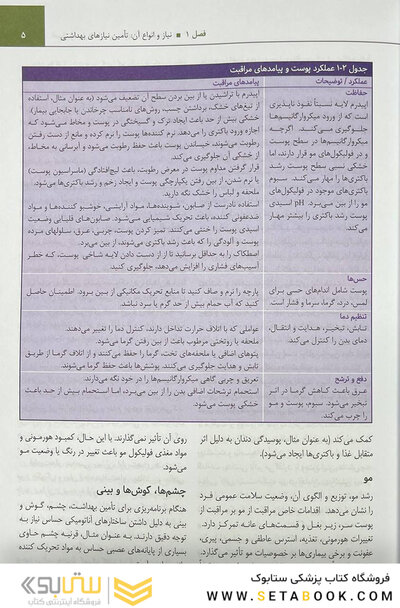 فصل ۱ ■ نیاز و انواع آن، تأمین نیازهای بهداشتی
۵
جدول ۲-۱ عملکرد پوست و پیامدهای مراقبت
عملکرد / توضیحات
پیامدهای مراقبت
حفاظت
اپیدرم لایه نسبتاً نفوذ ناپذیری
است که از ورود میکروارگانیسم‌ها
جلوگیری می‌کند. اگرچه
میکروارگانیسم‌ها در سطح پوست
و در فولیکول‌های مو قرار دارند، اما
خشکی نسبی سطح پوست رشد
باکتری‌ها را مهار می‌کند. سبوم
باکتری‌های موجود در فولیکول‌های
مو را از بین می‌برد. pH اسیدی
پوست رشد باکتری را بیشتر مهار
می‌کند.
اپیدرم با تراشیدن یا از بین بردن سطح آن تضعیف می‌شود (به عنوان مثال، استفاده
از تیغ‌های خشک، برداشتن چسب، روش‌های نامناسب چرخاندن یا جابجایی بیمار).
خشکی بیش از حد باعث ایجاد ترک و گسیختگی در پوست و مخاط می‌شود که
اجازه ورود باکتری را می‌دهد. نرم کننده‌ها پوست را نرم کرده و مانع از دست رفتن
رطوبت می‌شوند، خیساندن پوست باعث حفظ رطوبت می‌شود و آبرسانی به مخاط،
از خشکی آن جلوگیری می‌کند.
قرار گرفتن مداوم پوست در معرض رطوبت، باعث لیچ‌افتادگی (ماسراسیون پوست)
یا نرم شدن، از بین رفتن یکپارچگی پوست و ایجاد زخم و رشد باکتری‌ها می‌شود.
ملحفه و لباس را خشک نگه دارید.
استفاده نادرست از صابون، شوینده‌ها، مواد آرایشی، خوشبو کننده‌ها و مواد
ضدعفونی کننده، باعث تحریک شیمیایی می‌شود. صابون‌های قلیایی وضعیت
اسیدی پوست را خنثی می‌کنند. تمیز کردن پوست، چربی، عرق، سلولهای مرده
پوست و آلودگی را که باعث رشد باکتری می‌شوند، از بین می‌برد.
اصطکاک را به حداقل برسانید تا از از دست دادن لایه شاخی پوست، که خطر
آسیب‌های فشاری را افزایش می‌دهد، جلوگیری کنید.
حس‌ها
پوست شامل اندام‌های حسی برای
لمس، درد، گرما، سرما و فشار است.
پارچه را نرم و صاف کنید تا منابع تحریک مکانیکی از بین برود. اطمینان حاصل
کنید که آب حمام بیش از حد گرم یا سرد نباشد.
تنظیم دما
تابش، تبخیر، هدایت و انتقال،
دمای بدن را کنترل می‌کند.
عواملی که با اتلاف حرارت تداخل دارند، کنترل دما را تغییر می‌دهند.
ملحفه یا روتختی مرطوب باعث از بین رفتن گرما می‌شود.
پتوهای اضافی یا ملحفه‌های تخت، گرما را حفظ می‌کنند و از اتلاف گرما از طریق
تابش و هدایت جلوگیری می‌کنند. پوشش‌ها باعث حفظ گرما می‌شوند.
دفع و ترشح
عرق باعث کاهش گرما در اثر
تبخیر می‌شود. سبوم، پوست و مو
را چرب می‌کند.
تعریق و چربی گاهی میکروارگانیسم‌ها را در خود نگه می‌دارند.
استحمام ترشحات اضافی بدن را از بین می‌برد، اما استحمام بیش از حد باعث
خشکی پوست می‌شود.
کمک می‌کند (به عنوان مثال، پوسیدگی دندان به دلیل اثر
متقابل غذا و باکتری‌ها ایجاد می‌شود).
مو
رشد مو، توزیع و الگوی آن، وضعیت سلامت عمومی فرد
را نشان می‌دهد. اقدامات خاص مراقبت از مو بر مراقبت از
پوست سر، زیر بغل و قسمت‌های عانه تمرکز دارد.
تغییرات هورمونی، تغذیه، استرس عاطفی و جسمی، پیری،
عفونت و برخی بیماری‌ها بر خصوصیات مو تأثیر می‌گذارد.
روی آن تأثیر نمی‌گذارند. با این حال، کمبود هورمونی و
مواد مغذی فولیکول مو باعث تغییر در رنگ یا وضعیت مو
می‌شود.
چشم‌ها، گوش‌ها و بینی
هنگام برنامه‌ریزی برای تأمین بهداشت، چشم، گوش و
بینی به دلیل داشتن ساختارهای آناتومیکی حساس نیاز به
توجه دقیق دارند. به عنوان مثال، قرنیه چشم حاوی
بسیاری از پایانه‌های عصبی حساس به مواد تحریک کننده
فروشگاه کتاب پزشکی ستابوک
ستابوک
فروشگاه اینترنتی کتاب
WWW.SETABOOK.COM